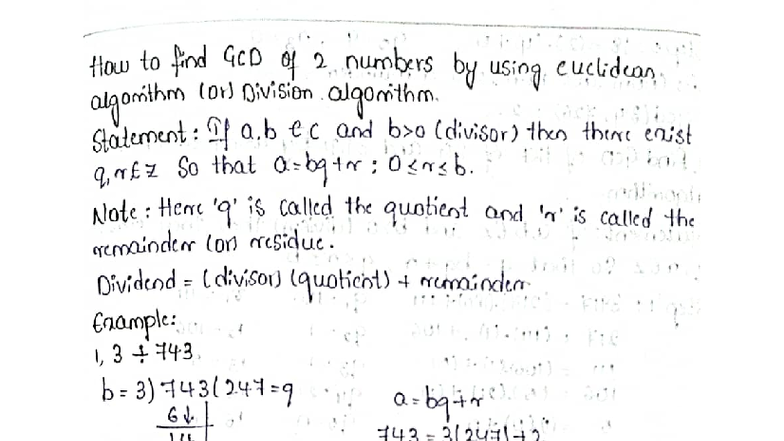 How to find GCD of 2 numbers by using euclidean
algorithm (or) Division algorithm.
Statement: If a,b ∈ c and b>0 (divisor) then there exist
q,r ∈ z So that a=bq+r ; 0≤r≤b.
Note: Here 'q' is called the quotient and 'r' is called the
remainder (or) residue.
Dividend = (divisor) (quotient) + remainder
Example:
1, 3 ÷ 743.
b = 3) 743 ( 247 = q
a = bq+r
6↓
743 = 3(247)+2
14